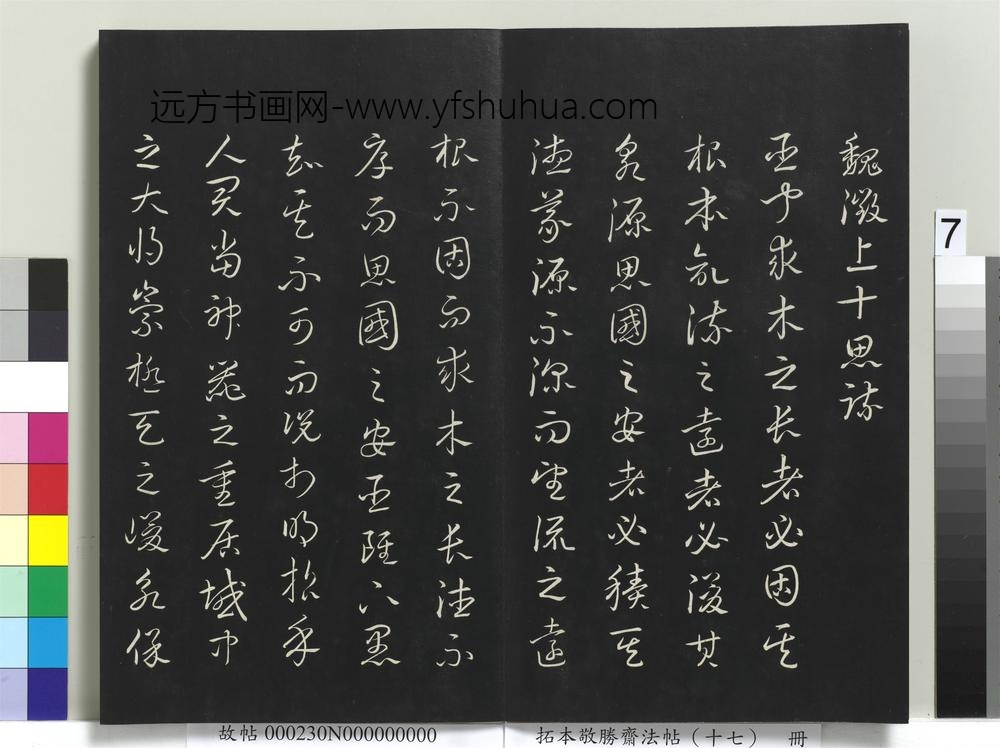 远方书画网-www.yfshuhua.com
魏徵上十思疏
臣聞求木之長者必固其
根本欲流之遠者必浚其
泉源思國之安者必積其
德義源不深而望流之遠
根不固而求木之長德不
厚而思國之安臣雖下愚
知其不可而況於明哲乎
人君當神器之重居域中
之大將崇極天之峻永保
7
故帖 000230N000000000
拓本敬勝齋法帖（十七） 冊